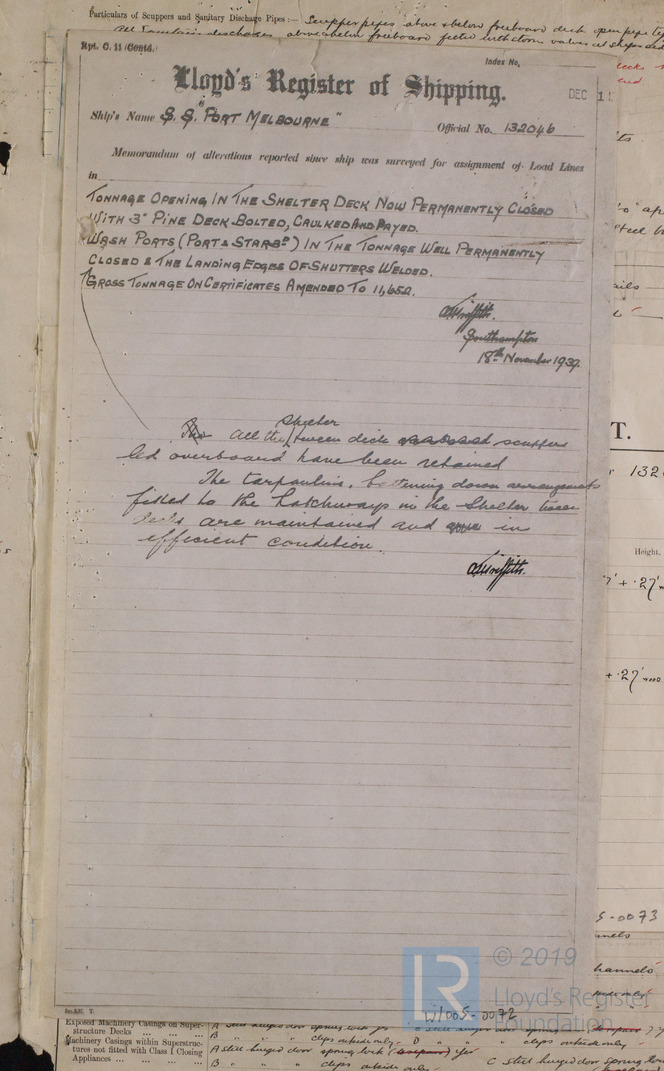 Particulars of Scuppers and Sanitary Discharge Pipes :— Scupper pipes above & below freeboard deck open pipe
All Sanitary discharges above & below freeboard fitted with storm valves at ships side
Rpt. C. 11 (Contd.)
Index No.
Lloyd's Register of Shipping.
DEC 1
Ship's Name S.S. "PORT MELBOURNE"
Official No. 132046
Memorandum of alterations reported since ship was surveyed for assignment of Load Lines
in
TONNAGE OPENING IN THE SHELTER DECK NOW PERMANENTLY CLOSED
WITH 3" PINE DECK BOLTED, CAULKED AND PAYED.
WASH PORTS (PORT & STARBD) IN THE TONNAGE WELL PERMANENTLY
CLOSED & THE LANDING EDGES OF SHUTTERS WELDED.
GROSS TONNAGE ON CERTIFICATES AMENDED TO 11,652.
Griffith.
Southampton
18th November 1937.
Shelter
All the tween deck scuppers
led overboard have been retained
The tarpaulins, battening down arrangements
fitted to the hatchways in the Shelter tween
decks are maintained and in
efficient condition.
Griffith.
T.
132
Height.
7' + .27'
+ .27'
S-0073
hannels
W1005-0072
LR
© 2019
Lloyd's Register
Foundation
Exposed Machinery Casings on Super-
structure Decks ... ... ...
Machinery Casings within Superstruc-
tures not fitted with Class I Closing
Appliances ... ... ... ...
A Steel hinged door spring lock yes
B " " " clips outside only. D " " " clips outside only
A Steel hinged door spring lock yes
C Steel hinged door spring lock
B " " " clips outside only